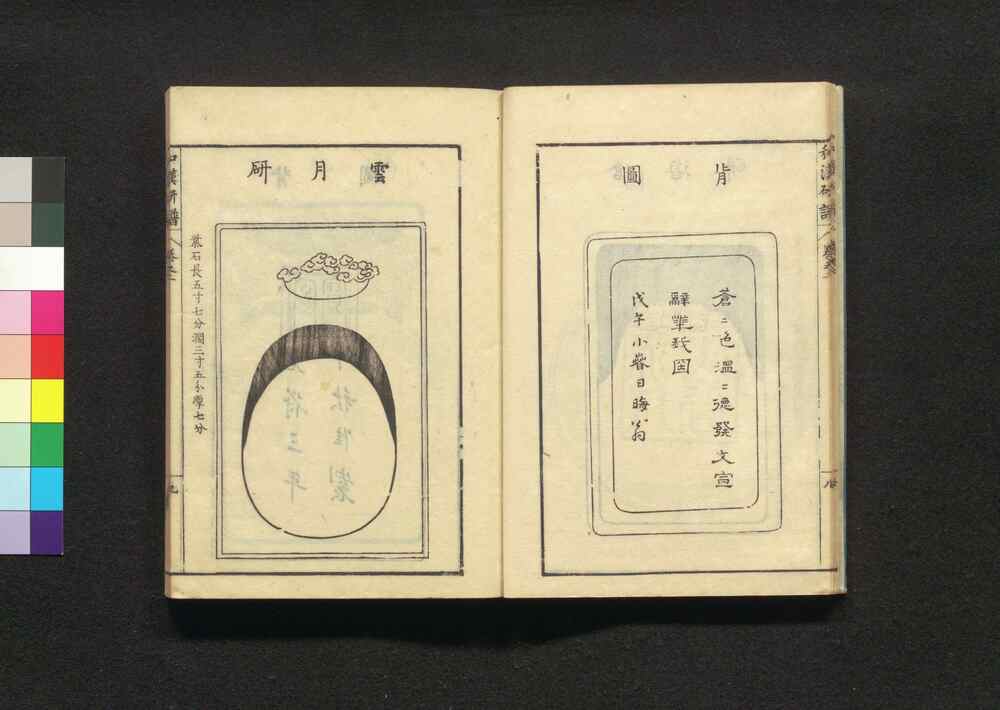 和漢研譜
背圖
蒼〻色溫〻德發文宣
辭華我固
戊午小春日晦翁
雲月研
紫石長五寸七分濶三寸五分厚七分
和漢研譜
九